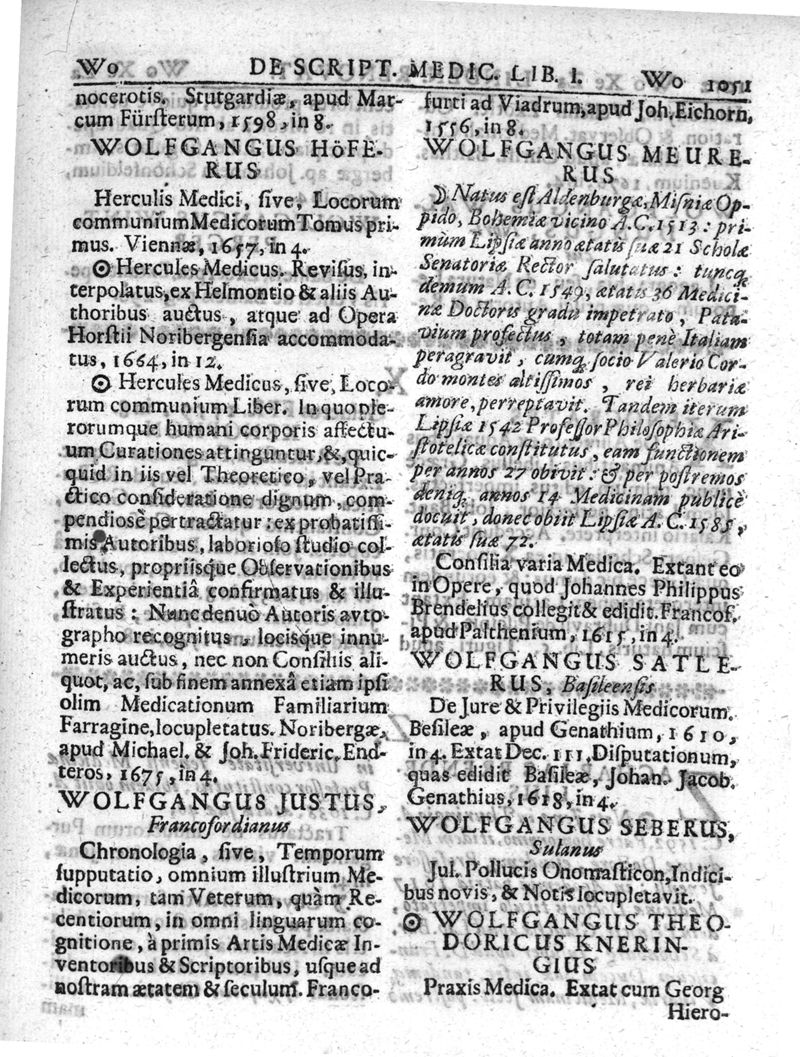 Wo DE SCRIPT. MEDIC. LIB. I. Wo 1051
nocerotis. Stutgardiæ, apud Mar-
cum Fürſterum, 1598, in 8.
WOLFGANGUS HöFE-
RUS
Herculis Medici, ſive, Locorum
communium Medicorum Tomus pri-
mus. Viennæ, 1657, in 4.
☉ Hercules Medicus. Reviſus, in-
terpolatus, ex Helmontio & aliis Au-
thoribus auctus, atque ad Opera
Horſtii Noribergenſia accommoda-
tus, 1664, in 12.
☉ Hercules Medicus, ſive, Loco-
rum communium Liber. In quo ple-
rorumque humani corporis affectu-
um Curationes attinguntur, &, quic-
quid in iis vel Theoretico, vel Pra-
ctico conſideratione dignum, com-
pendiosè pertractatur: ex probatiſſi-
mis Autoribus, laborioſo ſtudio col-
lectus, propriisque Obſervationibus
& Experientiâ confirmatus & illu-
ſtratus: Nunc denuò Autoris avto-
grapho recognitus, locisque innu-
meris auctus, nec non Conſiliis ali-
quot, ac, ſub finem annexâ etiam ipſi
olim Medicationum Familiarium
Farragine, locupletatus. Noribergæ,
apud Michael. & Joh. Frideric. End-
teros, 1675, in 4.
WOLFGANGUS JUSTUS,
Francofordianus
Chronologia, ſive, Temporum
ſupputatio, omnium illuſtrium Me-
dicorum, tam Veterum, quàm Re-
centiorum, in omni linguarum co-
gnitione, à primis Artis Medicæ In-
ventoribus & Scriptoribus, uſque ad
noſtram ætatem & ſeculum. Franco-
furti ad Viadrum, apud Joh. Eichorn,
1556, in 8.
WOLFGANGUS MEURE-
RUS
☽ Natus eſt Aldenburgæ, Miſniæ Op-
pido, Bohemiæ vicino A.C. 1513: pri-
mùm Lipſiæ anno ætatis ſuæ 21 Scholæ
Senatoriæ Rector ſalutatus: tuncq;
demum A.C. 1549, ætatis 36 Medici-
næ Doctoris gradu impetrato, Pata-
vium profectus, totam penè Italiam
peragravit, cumq; ſocio Valerio Cor-
do montes altiſſimos, rei herbariæ
amore, perreptavit. Tandem iterum
Lipſiæ 1542 Profeſſor Philoſophiæ Ari-
ſtotelicæ conſtitutus, eam functionem
per annos 27 obivit: & per poſtremos
deniq; annos 14 Medicinam publicè
docuit, donec obiit Lipſiæ A.C. 1585,
ætatis ſuæ 72.
Conſilia varia Medica. Extant eo
in Opere, quod Johannes Philippus
Brendelius collegit & edidit. Francof.
apud Palthenium, 1615, in 4.
WOLFGANGUS SATLE-
RUS, Baſileenſis
De Jure & Privilegiis Medicorum.
Beſileæ, apud Genathium, 1610,
in 4. Extat Dec. III. Diſputationum,
quas edidit Baſileæ, Johan. Jacob.
Genathius, 1618, in 4.
WOLFGANGUS SEBERUS,
Sulanus
Jul. Pollucis Onomaſticon, Indici-
bus novis, & Notis locupletavit.
☉ WOLFGANGUS THEO-
DORICUS KNERIN-
GIUS
Praxis Medica. Extat cum Georg
Hiero-